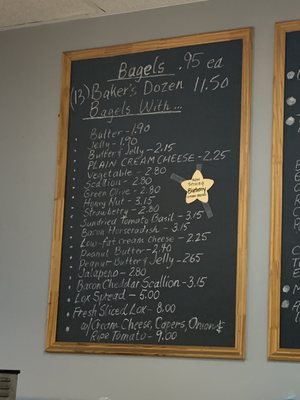 Bagels .95 ea
(13) Baker's Dozen 11.50
Bagels With...
Butter - 1.90
Jelly - 1.90
Butter & Jelly - 2.15
PLAIN CREAM CHEESE - 2.25
Vegetable - 2.80
Scallion - 2.80
Green Olive - 2.80
Honey Nut - 3.15
Strawberry - 2.80
Sundried Tomato Basil - 3.15
Bacon Horseradish - 3.15
Low-fat Cream Cheese - 2.25
Peanut Butter - 2.40
Peanut Butter & Jelly - 2.65
Jalapeno - 2.80
Bacon Cheddar Scallion - 3.15
Lox Spread - 5.00
Fresh Sliced Lox - 8.00
w/ Cream Cheese, Capers, Onion &
Ripe Tomato - 9.00
Blueberry